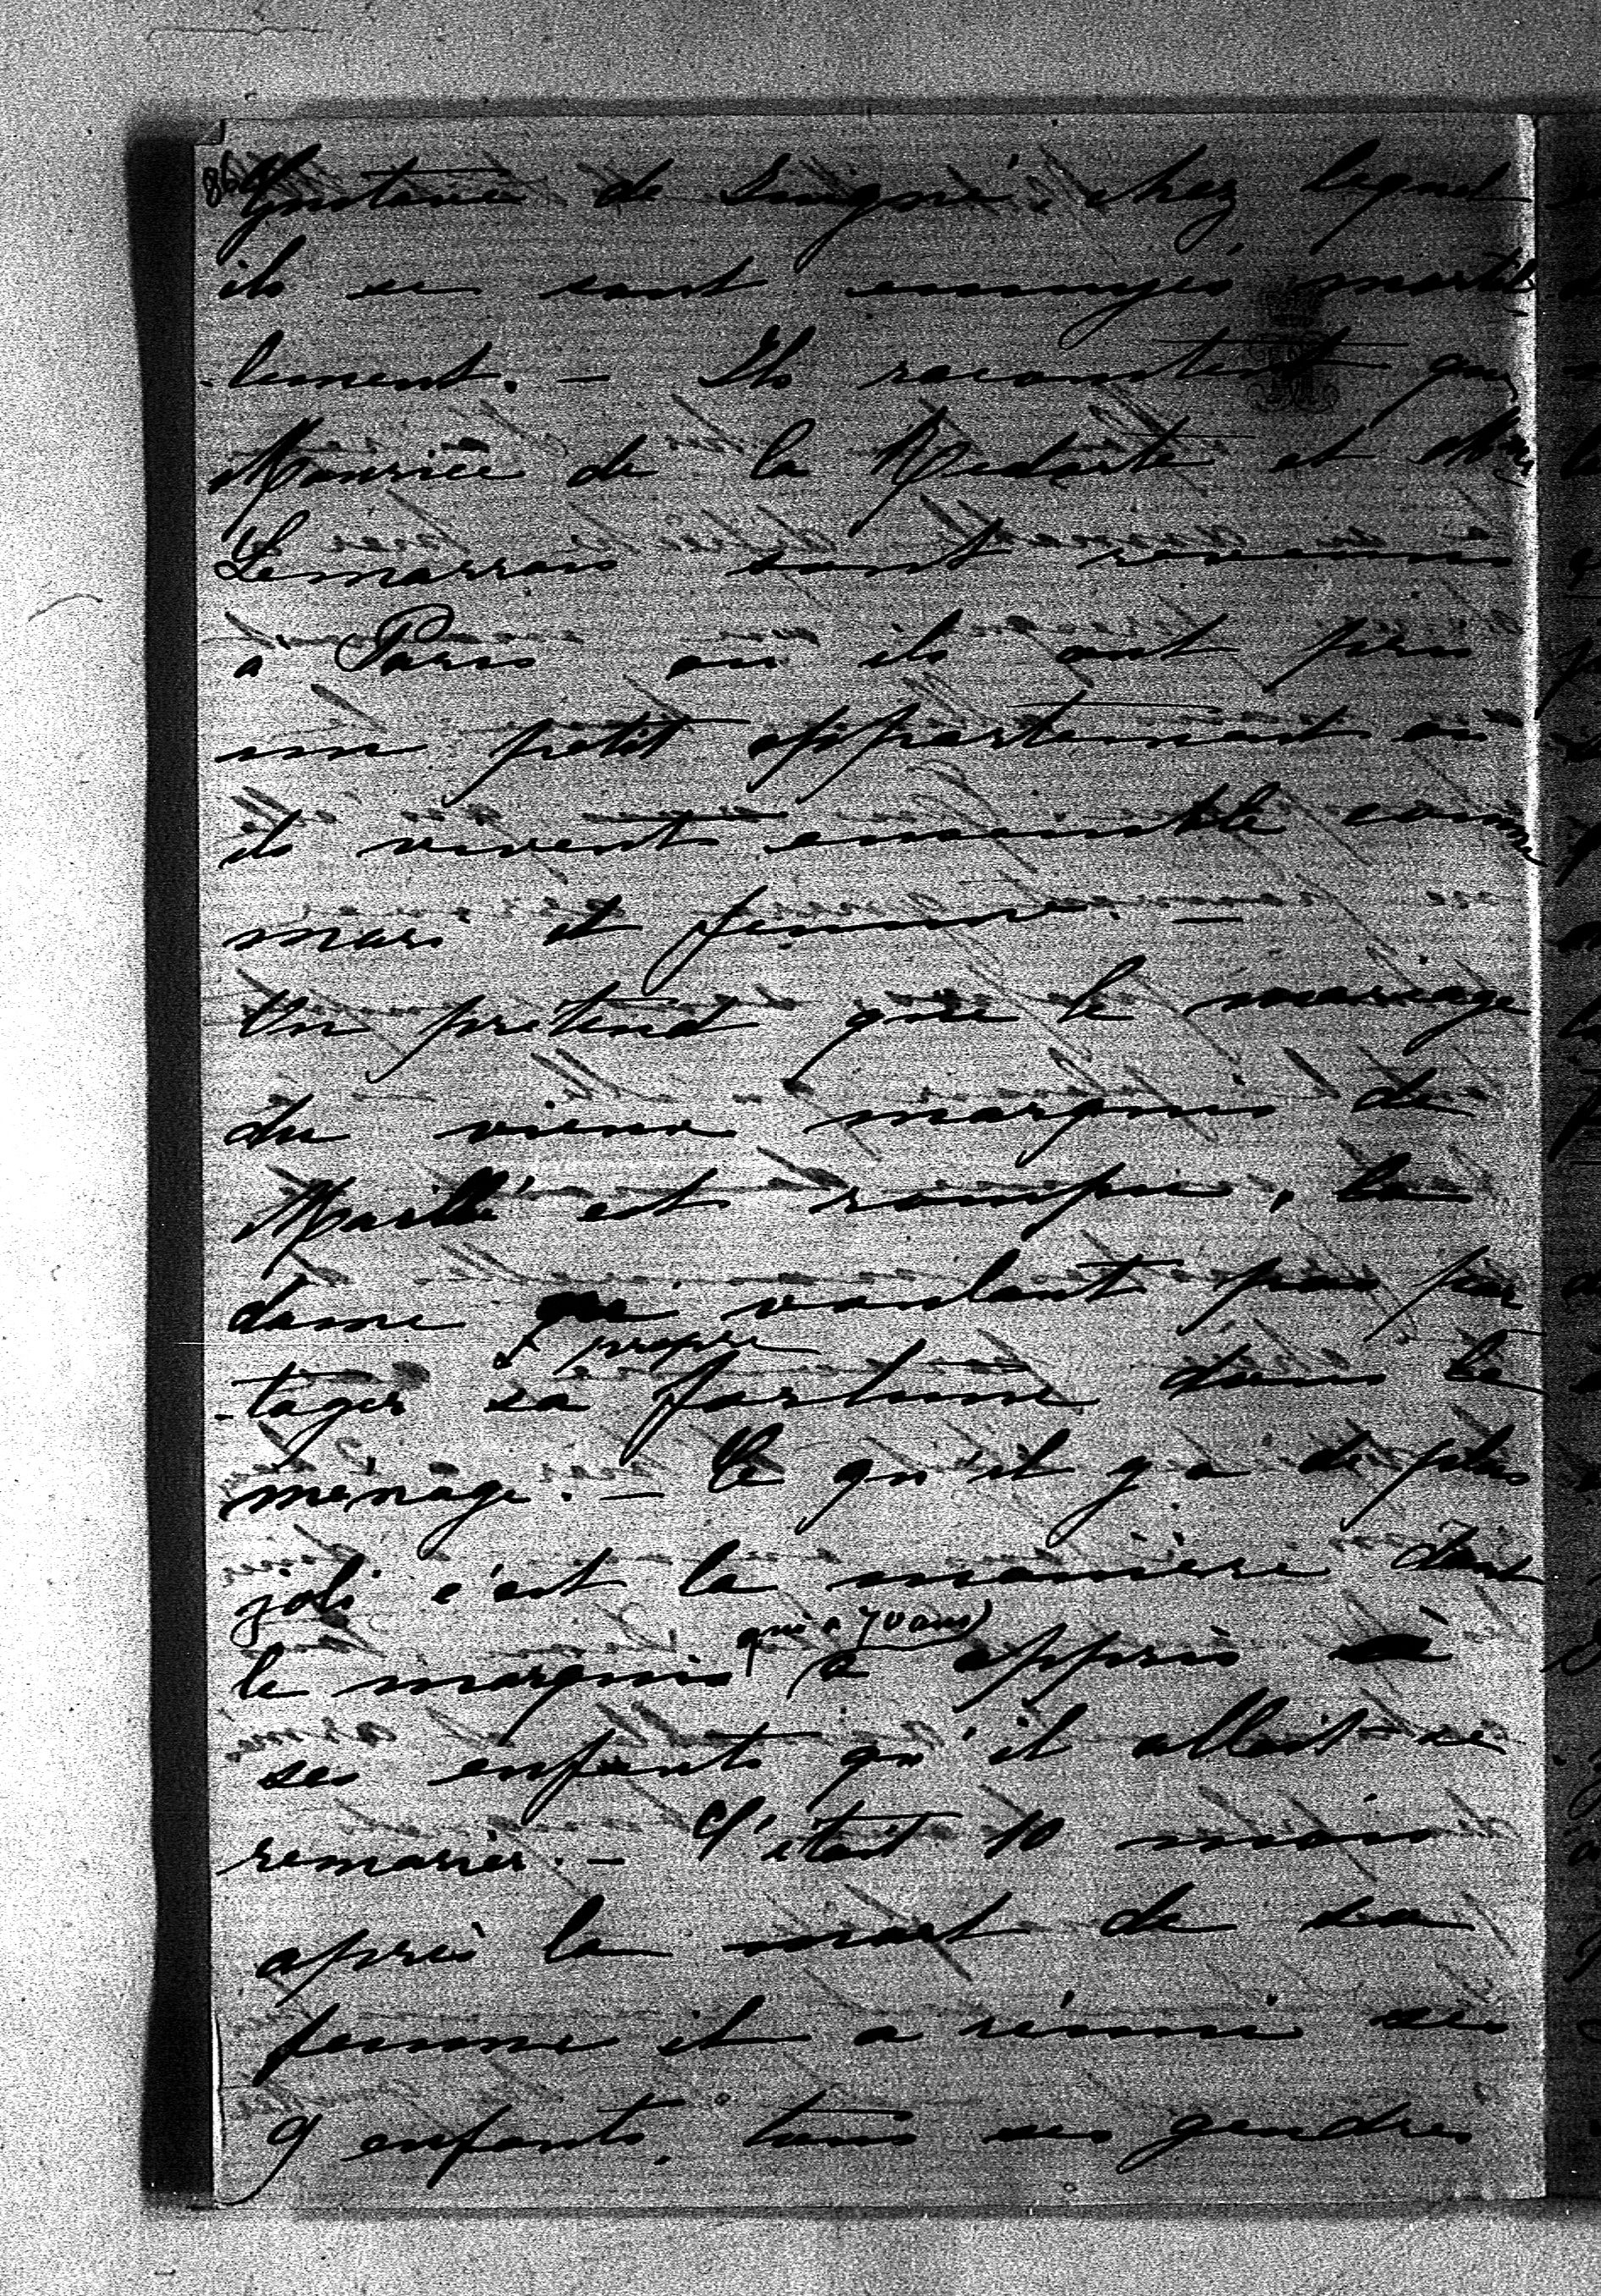 86
Gustave de Juigné, chez lequel
ils se sont ennuyés mortel
-lement. – Ils racontent que
Maurice de la et Mme
Lemarrois sont revenus
à Paris où ils ont pris
un petit appartement où
ils vivent ensemble comme
mari et femme. –
On prétend que le mariage
du vieux marquis de
Maillé est rompu, la
dame ne voulant pas par
-tager sa propre fortune dans le
ménage. – Ce qu'il y a de plus
joli c'est la manière dont
le marquis (qui a 70 ans) a appris à
ses enfants qu'il allait se
remarier. – C'était 10 mois
après la mort de sa
femme il a réuni ses
9 enfants, tous ses gendres